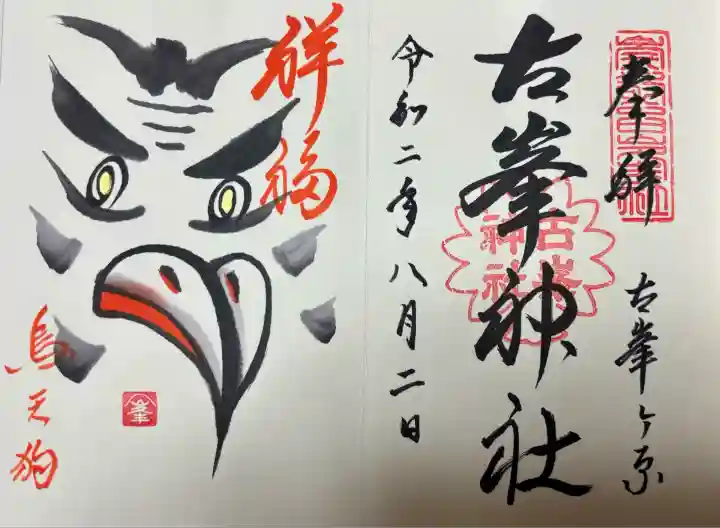 奉拝
古峯ヶ原
古峯神社
古峯神社
令和二年八月二日
祥福
烏天狗
峯